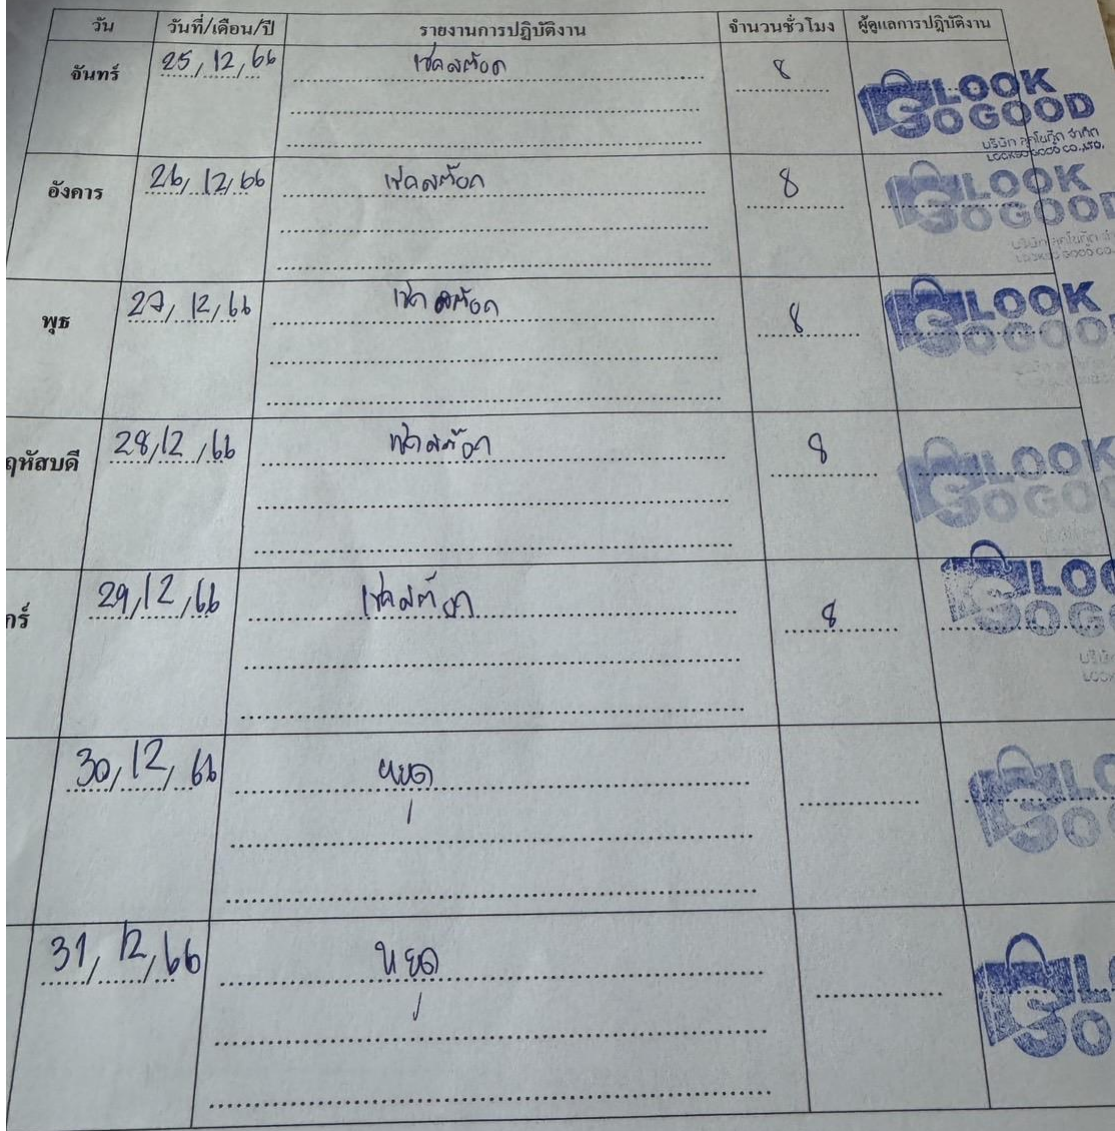 วัน วันที่/เดือน/ปี รายงานการปฏิบัติงาน จำนวนชั่วโมง ผู้ดูแลการปฏิบัติงาน
จันทร์ 25/12/66 เช็คสต๊อก 8
LOOK
SOGOOD
บริษัท ลุคโซกู๊ด จำกัด
LOOKSOGOOD CO.,LTD.
อังคาร 26/12/66 เช็คสต๊อก 8
LOOK
SOGOOD
พุธ 27/12/66 เช็คสต๊อก 8
LOOK
SOGOO
ฤหัสบดี 28/12/66 เช็คสต๊อก 8
LOOK
SOGOO
กร์ 29/12/66 เช็คสต๊อก 8
LOO
SOG
30/12/66 หยุด
LO
SO
31/12/66 หยุด
L
SO